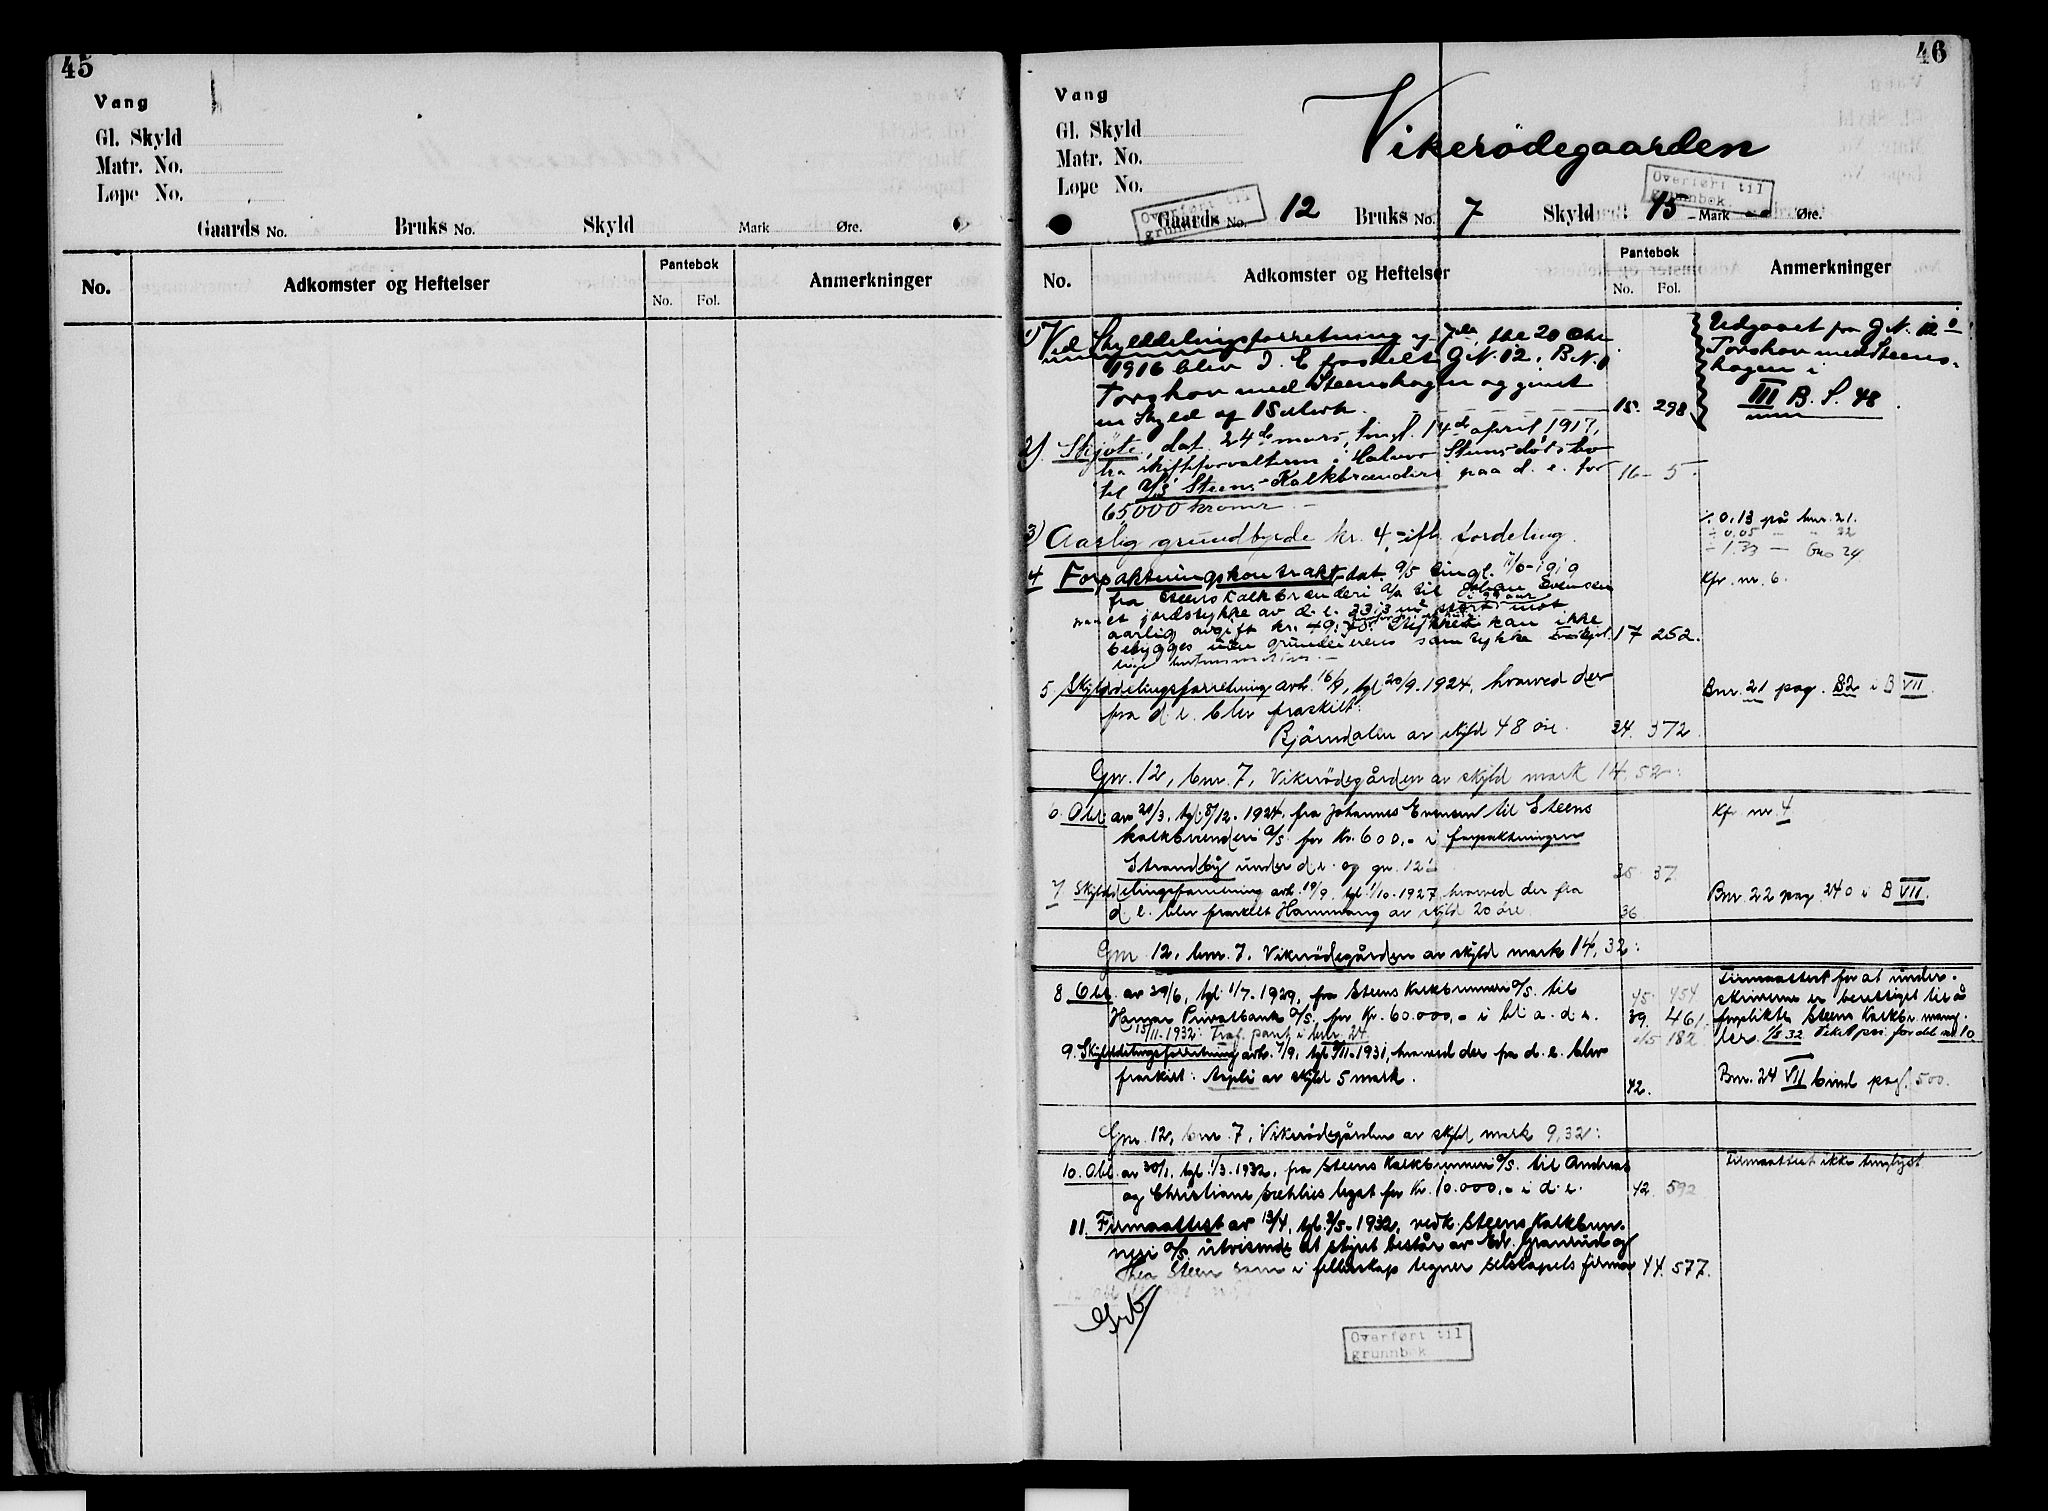 45
Vang
Gl. Skyld
Matr. No.
Løpe No.
Gaards No. Bruks No. Skyld Mark Øre.
No. Adkomster og Heftelser Pantebok No. Fol. Anmerkninger
46
Vang
Gl. Skyld
Matr. No.
Løpe No.
Vikerødegaarden
Overført til grunnbok.
Overført til grunnbok.
Gaards No. 12 Bruks No. 7 Skyld 15 Mark Øre.
No. Adkomster og Heftelser Pantebok No. Fol. Anmerkninger
1) Ved Skylddelingsforretning af 20
1916 blev d. E. fraskilt G.N. 12, B.N. 1
Torshov med Steenshagen og givet
en Skyld af 15 Mark. 15. 298
Udgaaet fra G.N. 12
Torshov med Steens-
hagen i
III B. S. 48
2) Skjøte, dat. 24de mars, tingl. 14de april 1917,
fra skifteforvalteren i Halvor Steens dødsbo
til A/S Steens Kalkbrænderi paa d. e. for 16 - 5
65000 kroner.
3) Aarlig grundbyrde kr. 4,- ifl. fordeling.
÷ 0,13 på bnr. 21.
÷ 0,05 - " 22
÷ 1,33 - Bno 24
4 Forpaktningskontrakt dat. 9/5 tingl. 1919
fra Steens Kalkbrænderi A/S til Evensen
et jordstykke av d. e. 333 m² stort mot
aarlig avgift kr. 49, Stykket kan ikke
bebygges uten grundeierens samtykke 17 252.
Kfr. nr. 6.
5 Skylddelingsforretning avh. 16/9, tgl. 20/9-1924, hvorved der
fra d. e. blev fraskilt:
Bjørndalen av skyld 48 øre. 34. 372
Bnr. 21 pag. 82 i B VII.
Gnr. 12, bnr. 7, Vikerødegården av skyld mark 14,52:
6. Obl. av 21/3, tgl. 8/12-1924, fra Johannes Evensen til Steens
kalkbrenneri A/S. for Kr. 600,- i forpaktningen
Strandby under d. e. og gnr. 12 35 37.
Kfr nr. 4
7 Skylddelingsforretning avh. 19/9, tgl. 1/10-1927, hvorved der fra
d. e. blev fraskilt Hammang av skyld 20 øre. 36
Bnr. 22 pag. 240 i B VII.
Gnr. 12, bnr. 7. Vikerødegården av skyld mark 14,32:
8 Obl. av 29/6, tgl. 1/7-1929, fra Steens Kalkbrenneri A/S. til 45 454
Hamar Privatbank A/S. for Kr. 60.000,- i bl. a. d. e. 39. 461
15/11-1932: Traf. pant. i bnr. 24. 182
Firmaattest for at under-
skriverne er berettiget til å
forplikte Steens Kalkbr. mang-
ler. 32 Veket pri. for obl. nr. 10
9. Skylddelingsforretning avh. 7/9, tgl. 9/11-1931, hvorved der fra d. e. blev
fraskilt: av skyld 5 mark. 42.
Bnr. 24 VII bind pag. 500.
Gnr. 12, bnr. 7, Vikerødegården av skyld mark 9,32:
10. Obl. av 30/1, tgl. 1/3-1932, fra Steens Kalkbrenneri A/S. til Andreas
og Christiane Sæhlies legat for Kr. 10.000,- i d. e. 42. 592
Firmaattest ikke tinglyst
11. Firmaattest av 13/4, tgl. 3/5-1932, vedk. Steens Kalkbren-
neri A/S. utvisende at styret består av Edv. Granrud og
Thea Steen som i fellesskap tegner selskapets firma 44. 577.
Overført til grunnbok